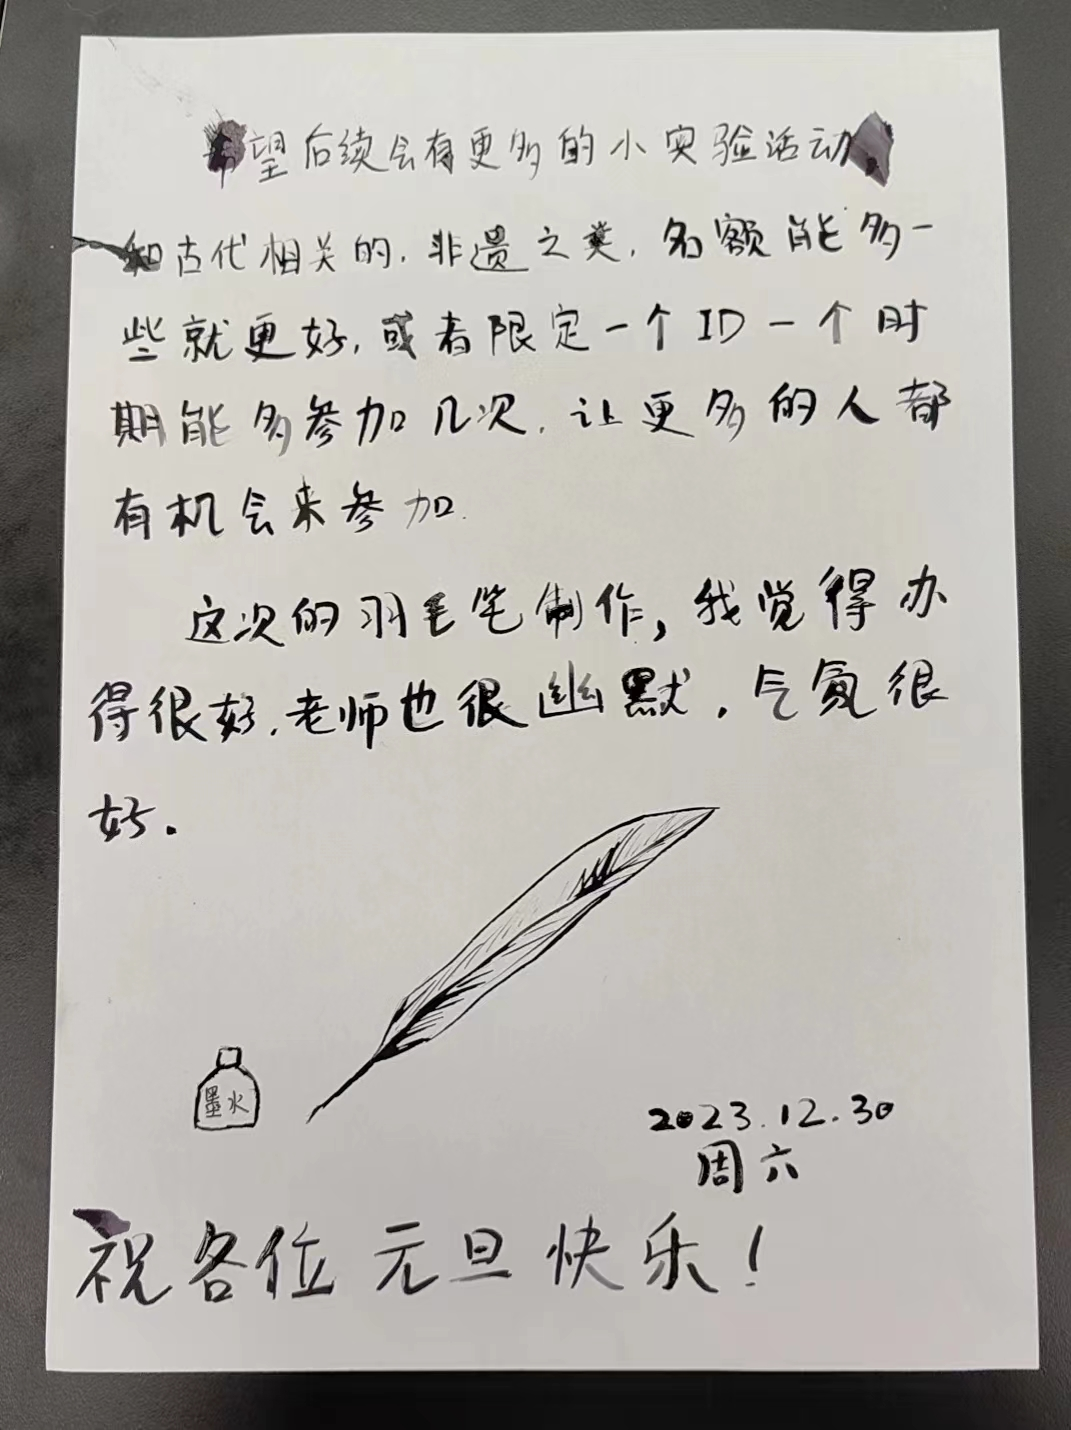 希望后续会有更多的小实验活动,
和古代相关的,非遗之类,名额能多一
些就更好,或者限定一个ID一个时
期能多参加几次,让更多的人都
有机会来参加.
这次的羽毛笔制作,我觉得办
得很好,老师也很幽默,气氛很
好.
墨水
2023.12.30
周六
祝各位元旦快乐!